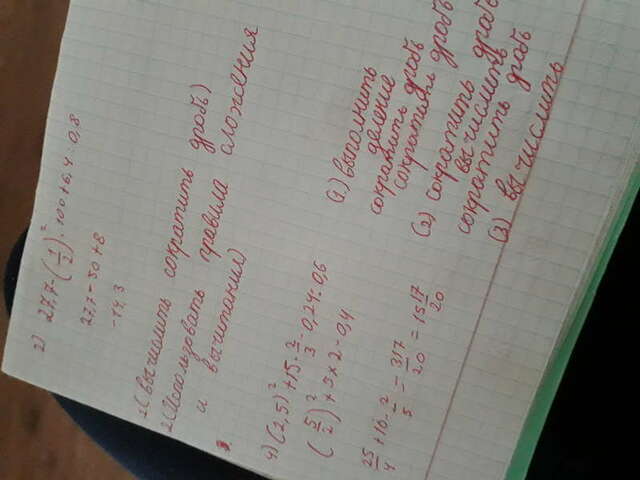 2) 27,7 - (1/2)² · 100 + 6,4 : 0,8
27,7 - 50 + 8
- 14,3
1 (Вычислить сократить дробь)
2 (Использовать правила сложения
и вычитания)
4) (2,5)² + 15 · 2/3 - 0,24 : 0,6
(5/2)² + 5 × 2 - 0,4
25/4 + 10 - 2/5 = 317/20 = 15 17/20
(1) Выполнить
деление
сократить дробь
(2) сократить дробь
сократить дробь
вычислить
(3) вычислить